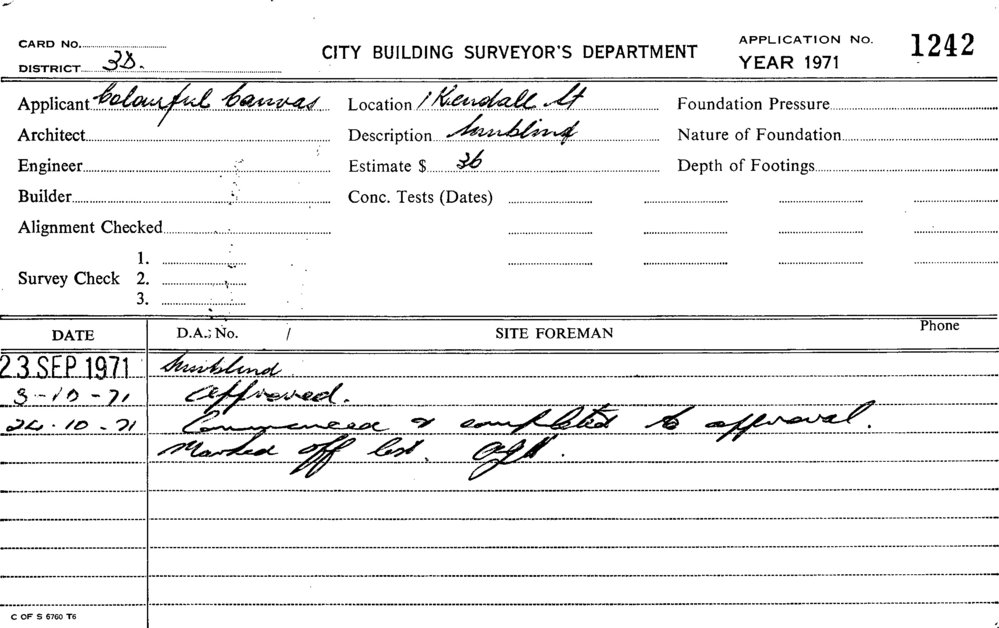 CARD No.
DISTRICT 3D.
CITY BUILDING SURVEYOR'S DEPARTMENT
APPLICATION No. 1242
YEAR 1971
Applicant Colourful Canvas Location 1 Kendall St Foundation Pressure
Architect Description Sunblind Nature of Foundation
Engineer Estimate $ 36 Depth of Footings
Builder Conc. Tests (Dates)
Alignment Checked
1.
Survey Check 2.
3.
DATE D.A. No. / SITE FOREMAN Phone
23 SEP 1971 Sunblind
3-10-71 Approved.
24.10-71 Commenced & completed to approval.
Marked off list.
C OF S 6760 T6